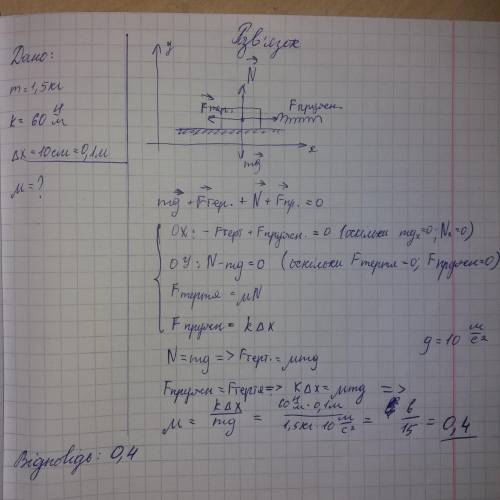 Розв'язок
Дано:
m = 1,5 кг
k = 60 Н/м
Δx = 10 см = 0,1 м
μ = ?
y
N⃗
F⃗тер.
F⃗пружн.
x
mg⃗
mg⃗ + F⃗тер. + N⃗ + F⃗пр. = 0
OX: -Fтерт + Fпружн. = 0 (оскільки mgₓ=0; Nₓ=0)
OY: N - mg = 0 (оскільки Fтертя = 0; Fпружн = 0)
Fтертя = μN
Fпружн = kΔx
N = mg => Fтерт. = μmg
g = 10 м/с²
Fпружн = Fтертя => kΔx = μmg =>
μ = kΔx/mg = 60 Н/м · 0,1 м / 1,5 кг · 10 м/с² = 6/15 = 0,4
Відповідь: 0,4